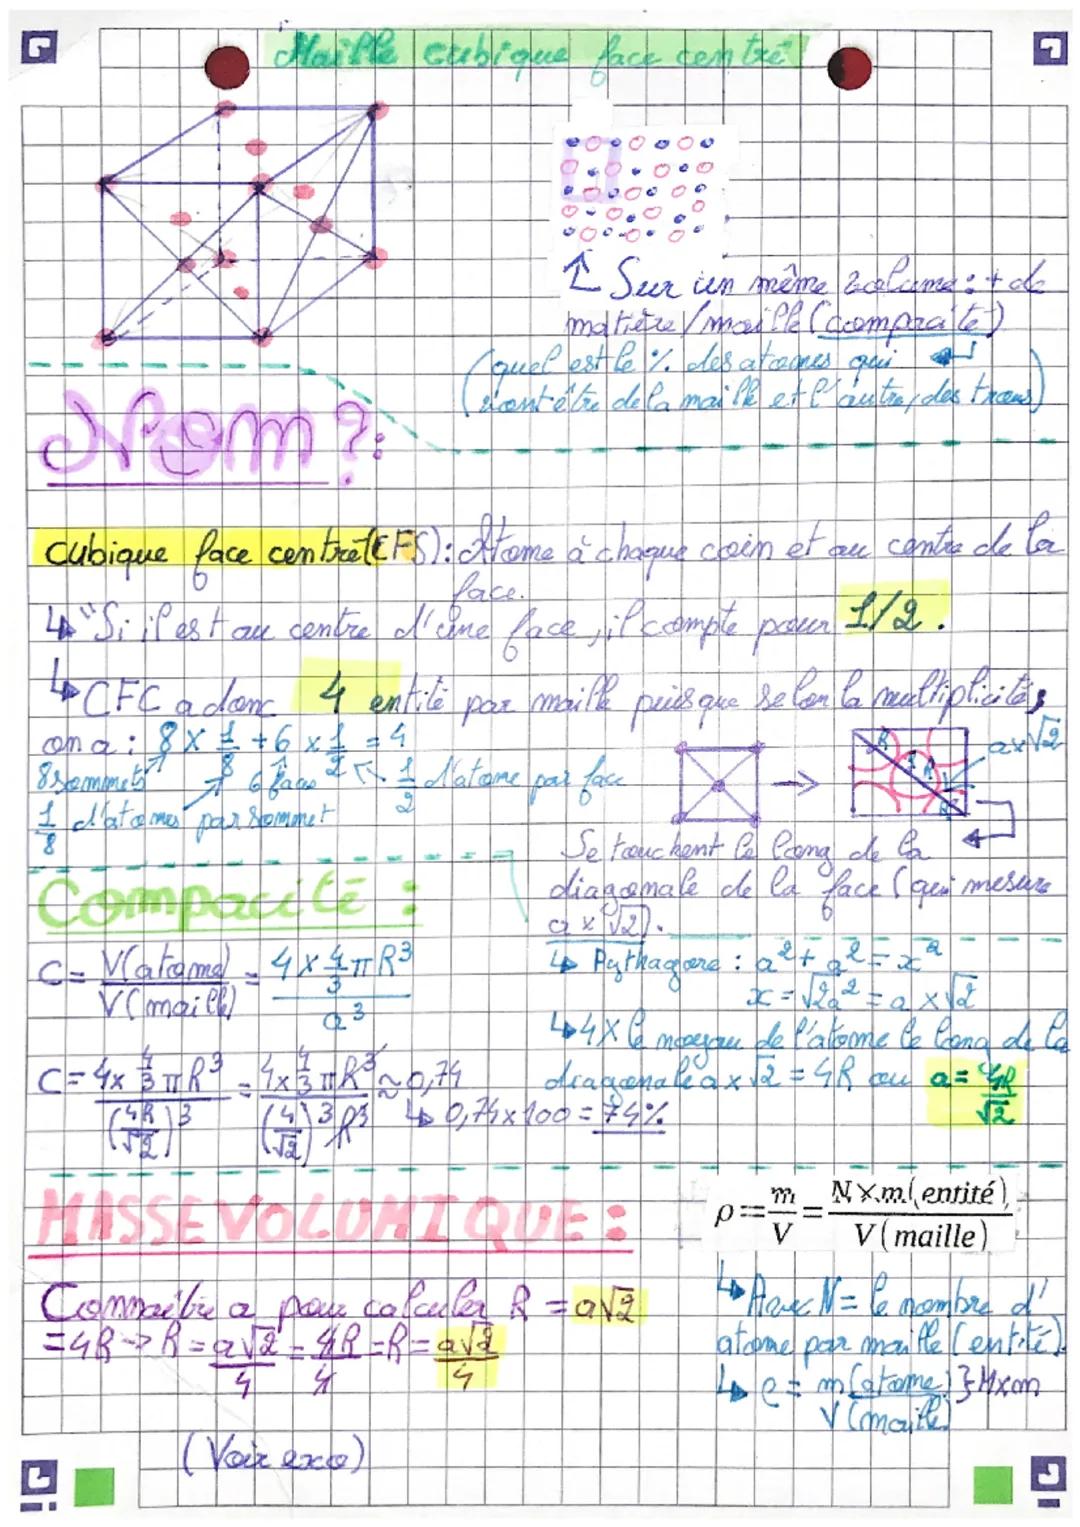 Maille cubique face centré
↑ Sur un même volume : + de
matière/maille (compacité)
(quel est le % des atomes qui
vont être de la maille et l'autre, des trous)
Nom ?:
cubique face centré (CFS) : Atome à chaque coin et au centre de la
face.
↳ "Si il est au centre d'une face, il compte pour 1/2.
↳ CFC a donc 4 entité par maille puisque selon la multiplicités
on a : 8 x 1/8 + 6 x 1/2 = 4
8 sommets
6 faces
1/2 d'atome par face
1/8 d'atomes par sommet
R
R
a x √2
Se touchent le long de la
diagonale de la face (qui mesure
a x √2).
↳ Pythagore : a² + a² = x²
x = √2a² = a x √2
↳ 4 X le rayon de l'atome le long de la
diagonale a x √2 = 4R ou a = 4R/√2
Compacité :
C = V(atome)/V(maille) = 4 x 4/3 π R³/a³
C = 4x 4/3 π R³/(4R/√2)³ = 4x 4/3 π R³/(4/√2)³ R³ ≈ 0,74
↳ 0,74 x 100 = 74%
MASSE VOLUMIQUE :
Connaître a pour calculer R = a√2
= 4R → R = a√2/4 = 4R/4 = R = a√2/4
(Voir exo)
ρ == m/V = N × m (entité)/V (maille)
↳ Avec N = le nombre d'
atome par maille (entité).
↳ ρ = m(atome)/V(maille) } N x m